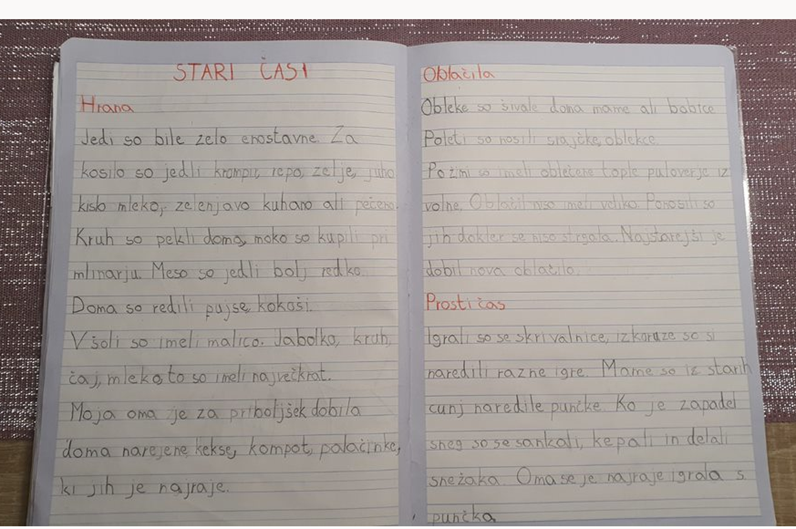 STARI ČASI
Hrana
Jedi so bile zelo enostavne. Za
kosilo so jedli krompir, repo, zelje, juho
kislo mleko, zelenjavo kuhano ali pečeno.
Kruh so pekli doma, moko so kupili pri
mlinarju. Meso so jedli bolj redko.
Doma so redili pujse, kokoši.
V šoli so imeli malico. Jabolko, kruh,
čaj, mleko, to so imeli največkrat.
Moja oma je za priboljšek dobila
doma narejene kekse, kompot, palačinke,
ki jih je najraje.
Oblačila
Obleke so šivale doma mame ali babice
Poleti so nosili srajčke, oblekce.
Pozimi so imeli oblečene tople puloverje iz
volne. Oblačil niso imeli veliko. Ponosili so
jih dokler se niso strgala. Najstarejši je
dobil nova oblačila.
Prosti čas
Igrali so se skrivalnice, iz koruze so si
naredili razne igre. Mame so iz starih
cunj naredile punčke. Ko je zapadel
sneg so se sankali, kepali in delali
snežaka. Oma se je najraje igrala s
punčka